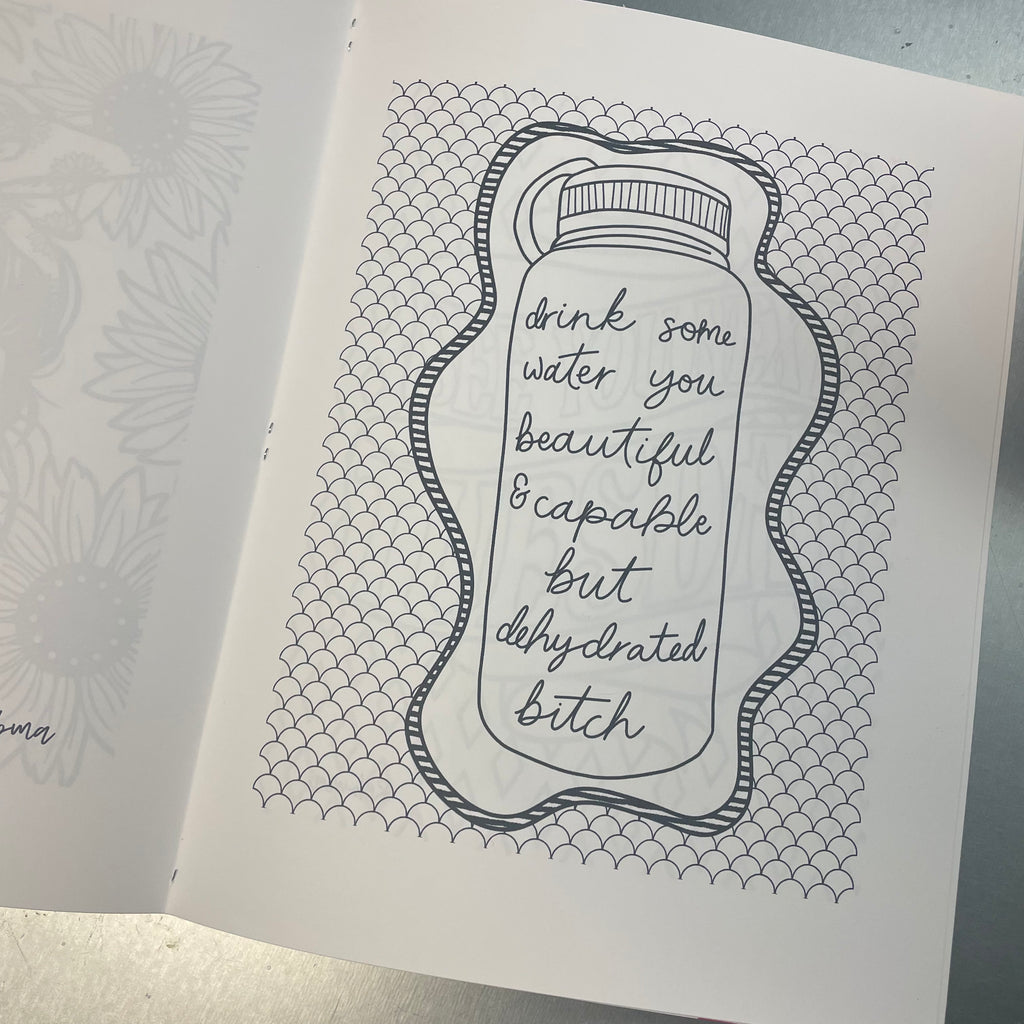 drink some
water you
beautiful
& capable
but
dehydrated
bitch